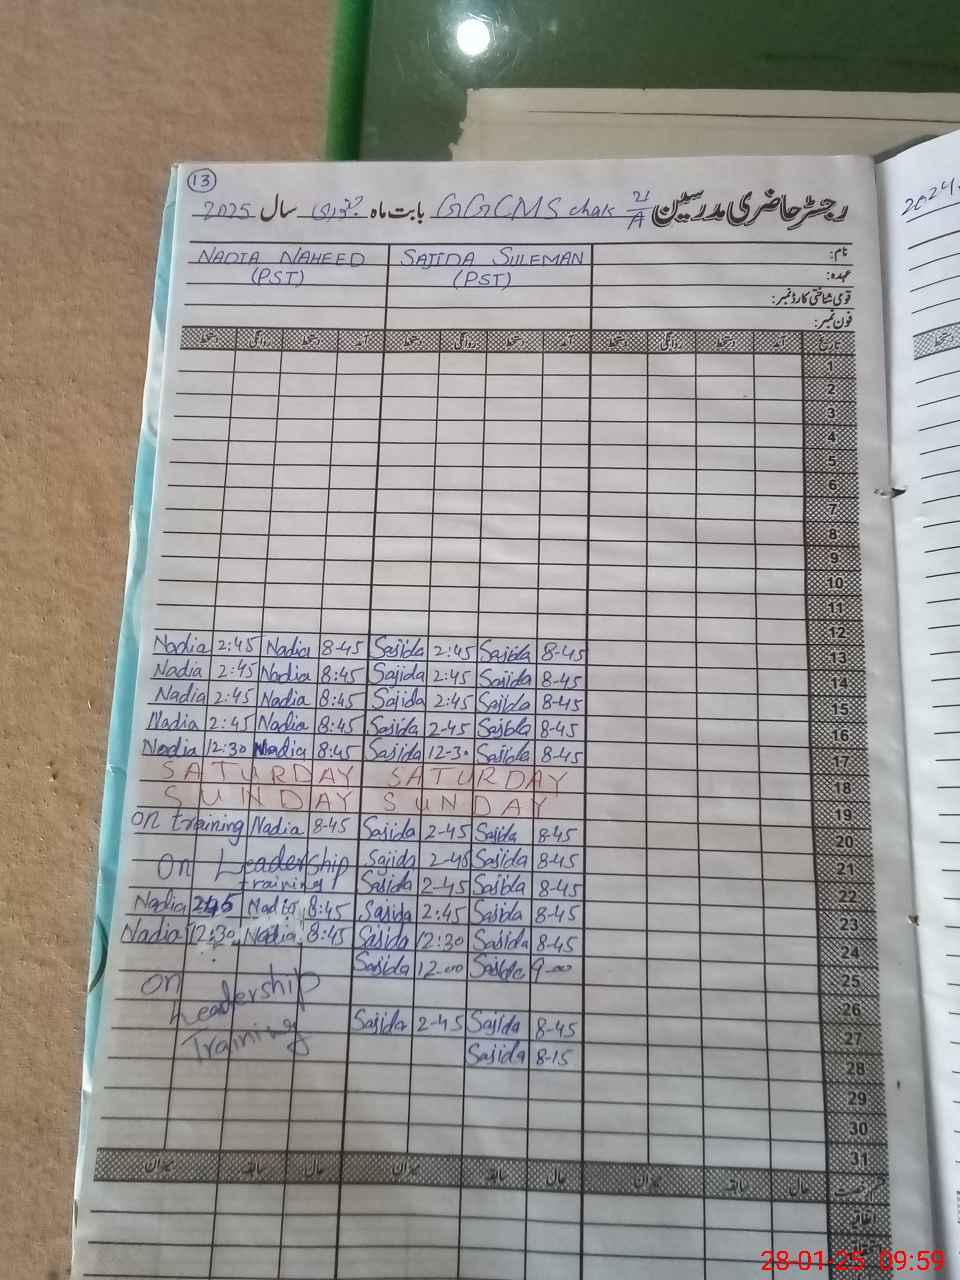 13
رجسٹر حاضری مدرسین 21/A GGCMS chak بابت ماہ جنوری سال 2025
2024
نام: SAJIDA SULEMAN NADIA NAHEED
عہدہ: (PST) (PST)
قومی شناختی کارڈ نمبر:
فون نمبر:
تاریخ آمد دستخط روانگی دستخط آمد دستخط روانگی دستخط آمد دستخط روانگی دستخط
1
2
3
4
5
6
7
8
9
10
11
12
Nadia 2:45 Nadia 8-45 Sajida 2:45 Sajida 8-45 13
Nadia 2:45 Nadia 8:45 Sajida 2:45 Sajida 8-45 14
Nadia 2:45 Nadia 8:45 Sajida 2:45 Sajida 8-45 15
Nadia 2:45 Nadia 8:45 Sajida 2-45 Sajida 8-45 16
Nadia 12:30 Nadia 8:45 Sajida 12-30 Sajida 8-45 17
SATURDAY SATURDAY 18
SUNDAY SUNDAY 19
On training Nadia 8-45 Sajida 2-45 Sajida 8-45 20
On Leadership Sajida 2-45 Sajida 8-45 21
training Sajida 2-45 Sajida 8-45 22
Nadia 2:45 Nadia 8:45 Sajida 2:45 Sajida 8-45 23
Nadia 12:30 Nadia 8:45 Sajida 12:30 Sajida 8-45 24
On Sajida 12-00 Sajida 9-00 25
Leadership 26
Training Sajida 2-45 Sajida 8-45 27
Sajida 8-15 28
29
30
31
حال سابقہ میزان حال سابقہ میزان حال سابقہ میزان
اتفاقی
28-01-25 09:59